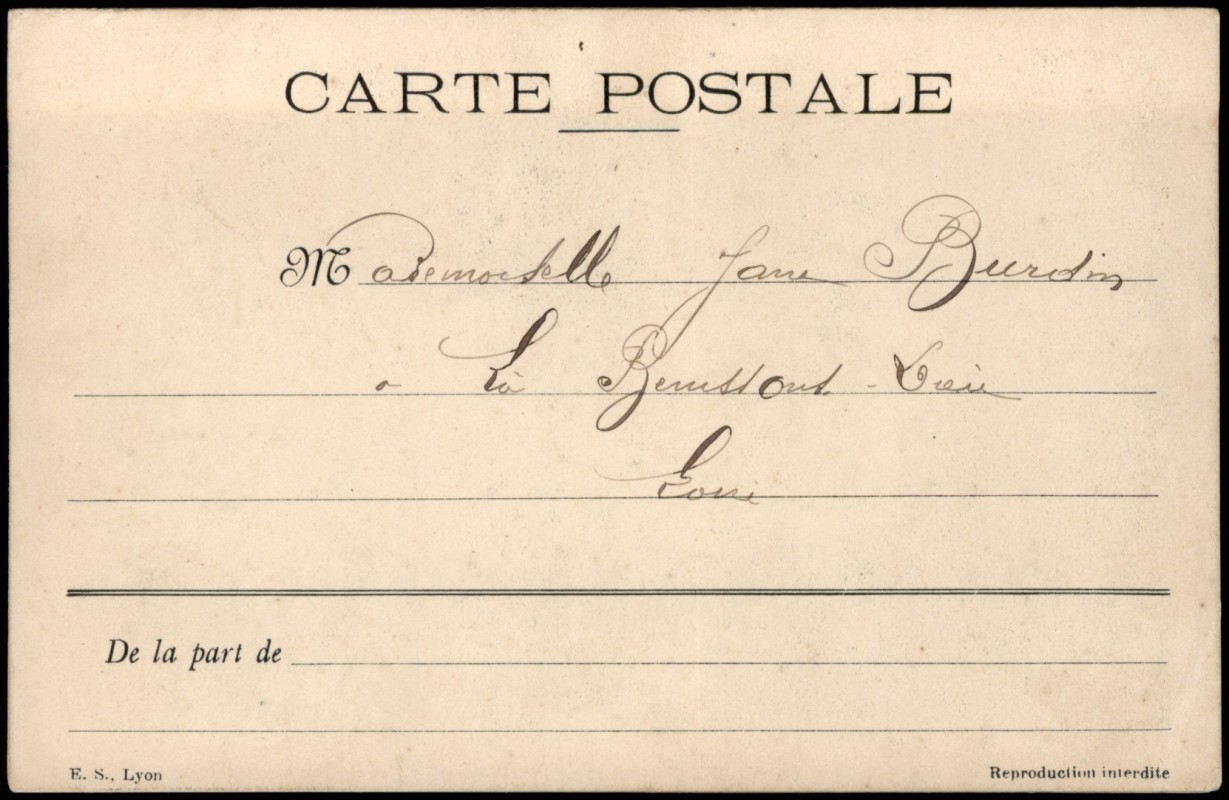 CARTE POSTALE
Mademoiselle Jane Burdin
a La Benisson-Dieu
Loire
De la part de
E. S., Lyon
Reproduction interdite